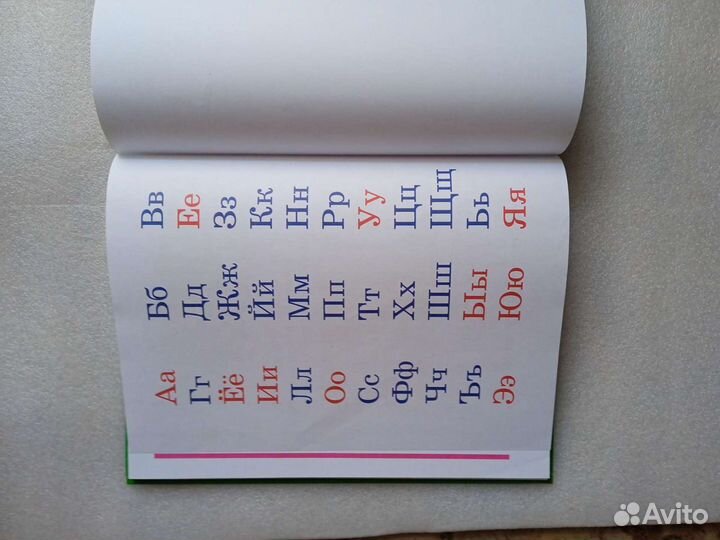 Аа Бб Вв
Гг Дд Ее
Ёё Жж Зз
Ии Йй Кк
Лл Мм Нн
Оо Пп Рр
Сс Тт Уу
Фф Хх Цц
Чч Шш Щщ
Ъъ Ыы Ьь
Ээ Юю Яя
Avito